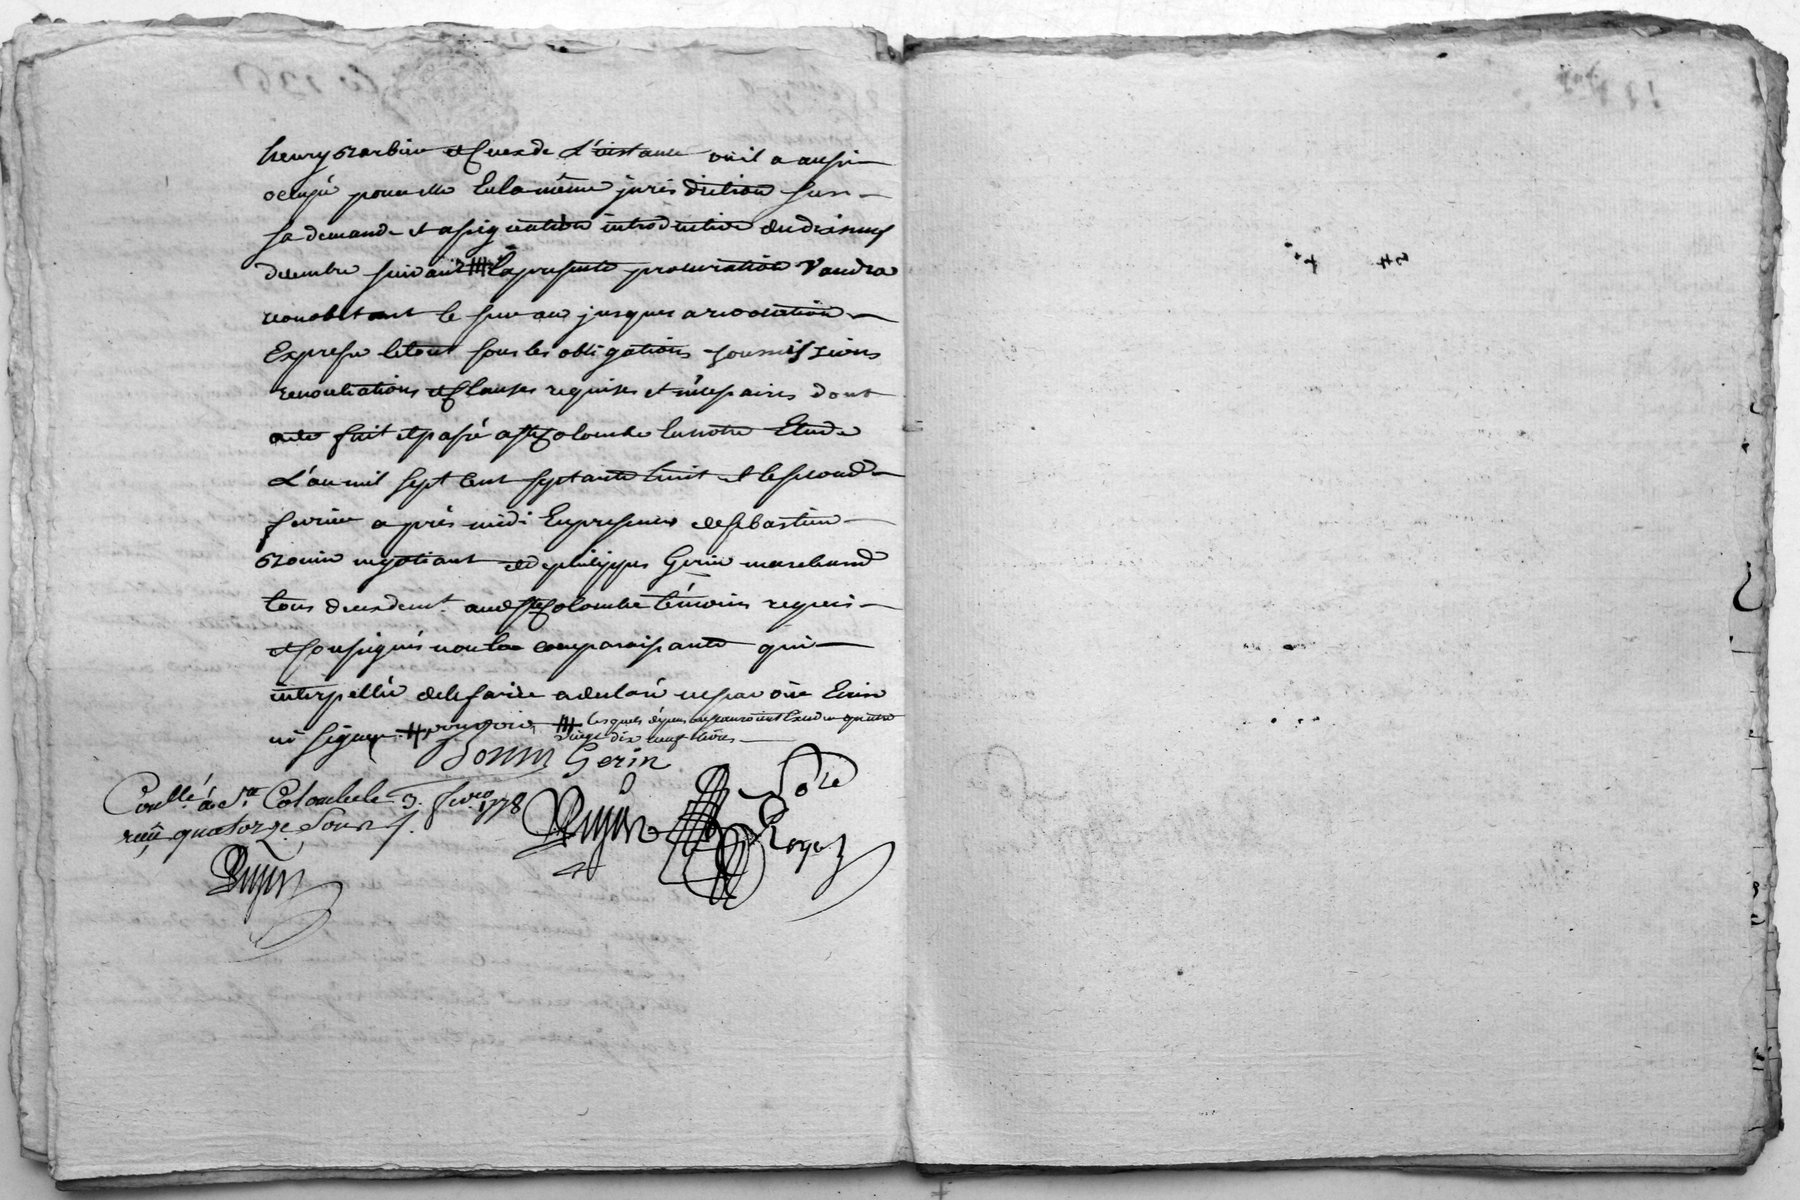 henry Barbier et Ceux de L'instance où il a aussi
occupé pour elle En la même jurisdiction sur
sa demande et assignation introductive du dix neuf
decembre suivant ### La presente procuration Vaudra
nonobstant le sur an jusques a revocation
Expresse le tout sous les obligations soumissions
renonciations et Clauses requises et necessaires dont
acte fait et passé a Ste Colombe En notre Etude
L'an mil sept cent septante huit et le second
fevrier après midi En presence de sebastien
Bonin negotiant et de philippes Gerin marchand
tous deux demt. aud. Ste Colombe témoins requis
et soussignés non la comparaissante qui
interpellée de le faire a declaré ne savoir Ecrire
ni signer # pouvoir ### lesquels depens
vingt dix neuf livres
Bonin Gerin
Conllé. à Ste Colombe le 3. fevro 1778
reçu quatorze sous